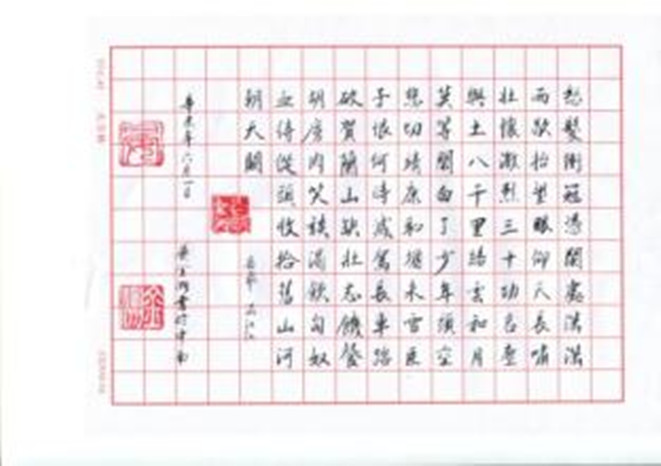 怒髮衝冠憑闌處瀟瀟
雨歇抬望眼仰天長嘯
壯懷激烈三十功名塵
與土八千里路雲和月
莫等閒白了少年頭空
悲切靖康恥猶未雪臣
子恨何時滅駕長車踏
破賀蘭山缺壯志饑餐
胡虜肉笑談渴飲匈奴
血待從頭收拾舊山河
朝天闕
岳飛 滿江紅
年六月一日